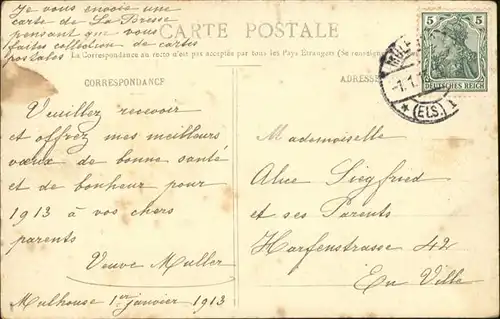 Je vous envoie une
carte de La Bresse
pensant que vous
faites collection de cartes
postales
CARTE POSTALE
La Correspondance au recto n'est pas acceptée par tous les Pays Étrangers (Se renseigner
CORRESPONDANCE
Veuillez recevoir
et offrez mes meilleurs
vœux de bonne santé
et de bonheur pour
1913 à vos chers
parents
Veuve Muller
Mulhouse 1er janvier 1913
ADRESSE
5 5
DEUTSCHES REICH
MÜL
-1.1.
* (ELS.) 1
Mademoiselle
Alice Siegfried
et ses Parents
Harfenstrasse 42
En Ville